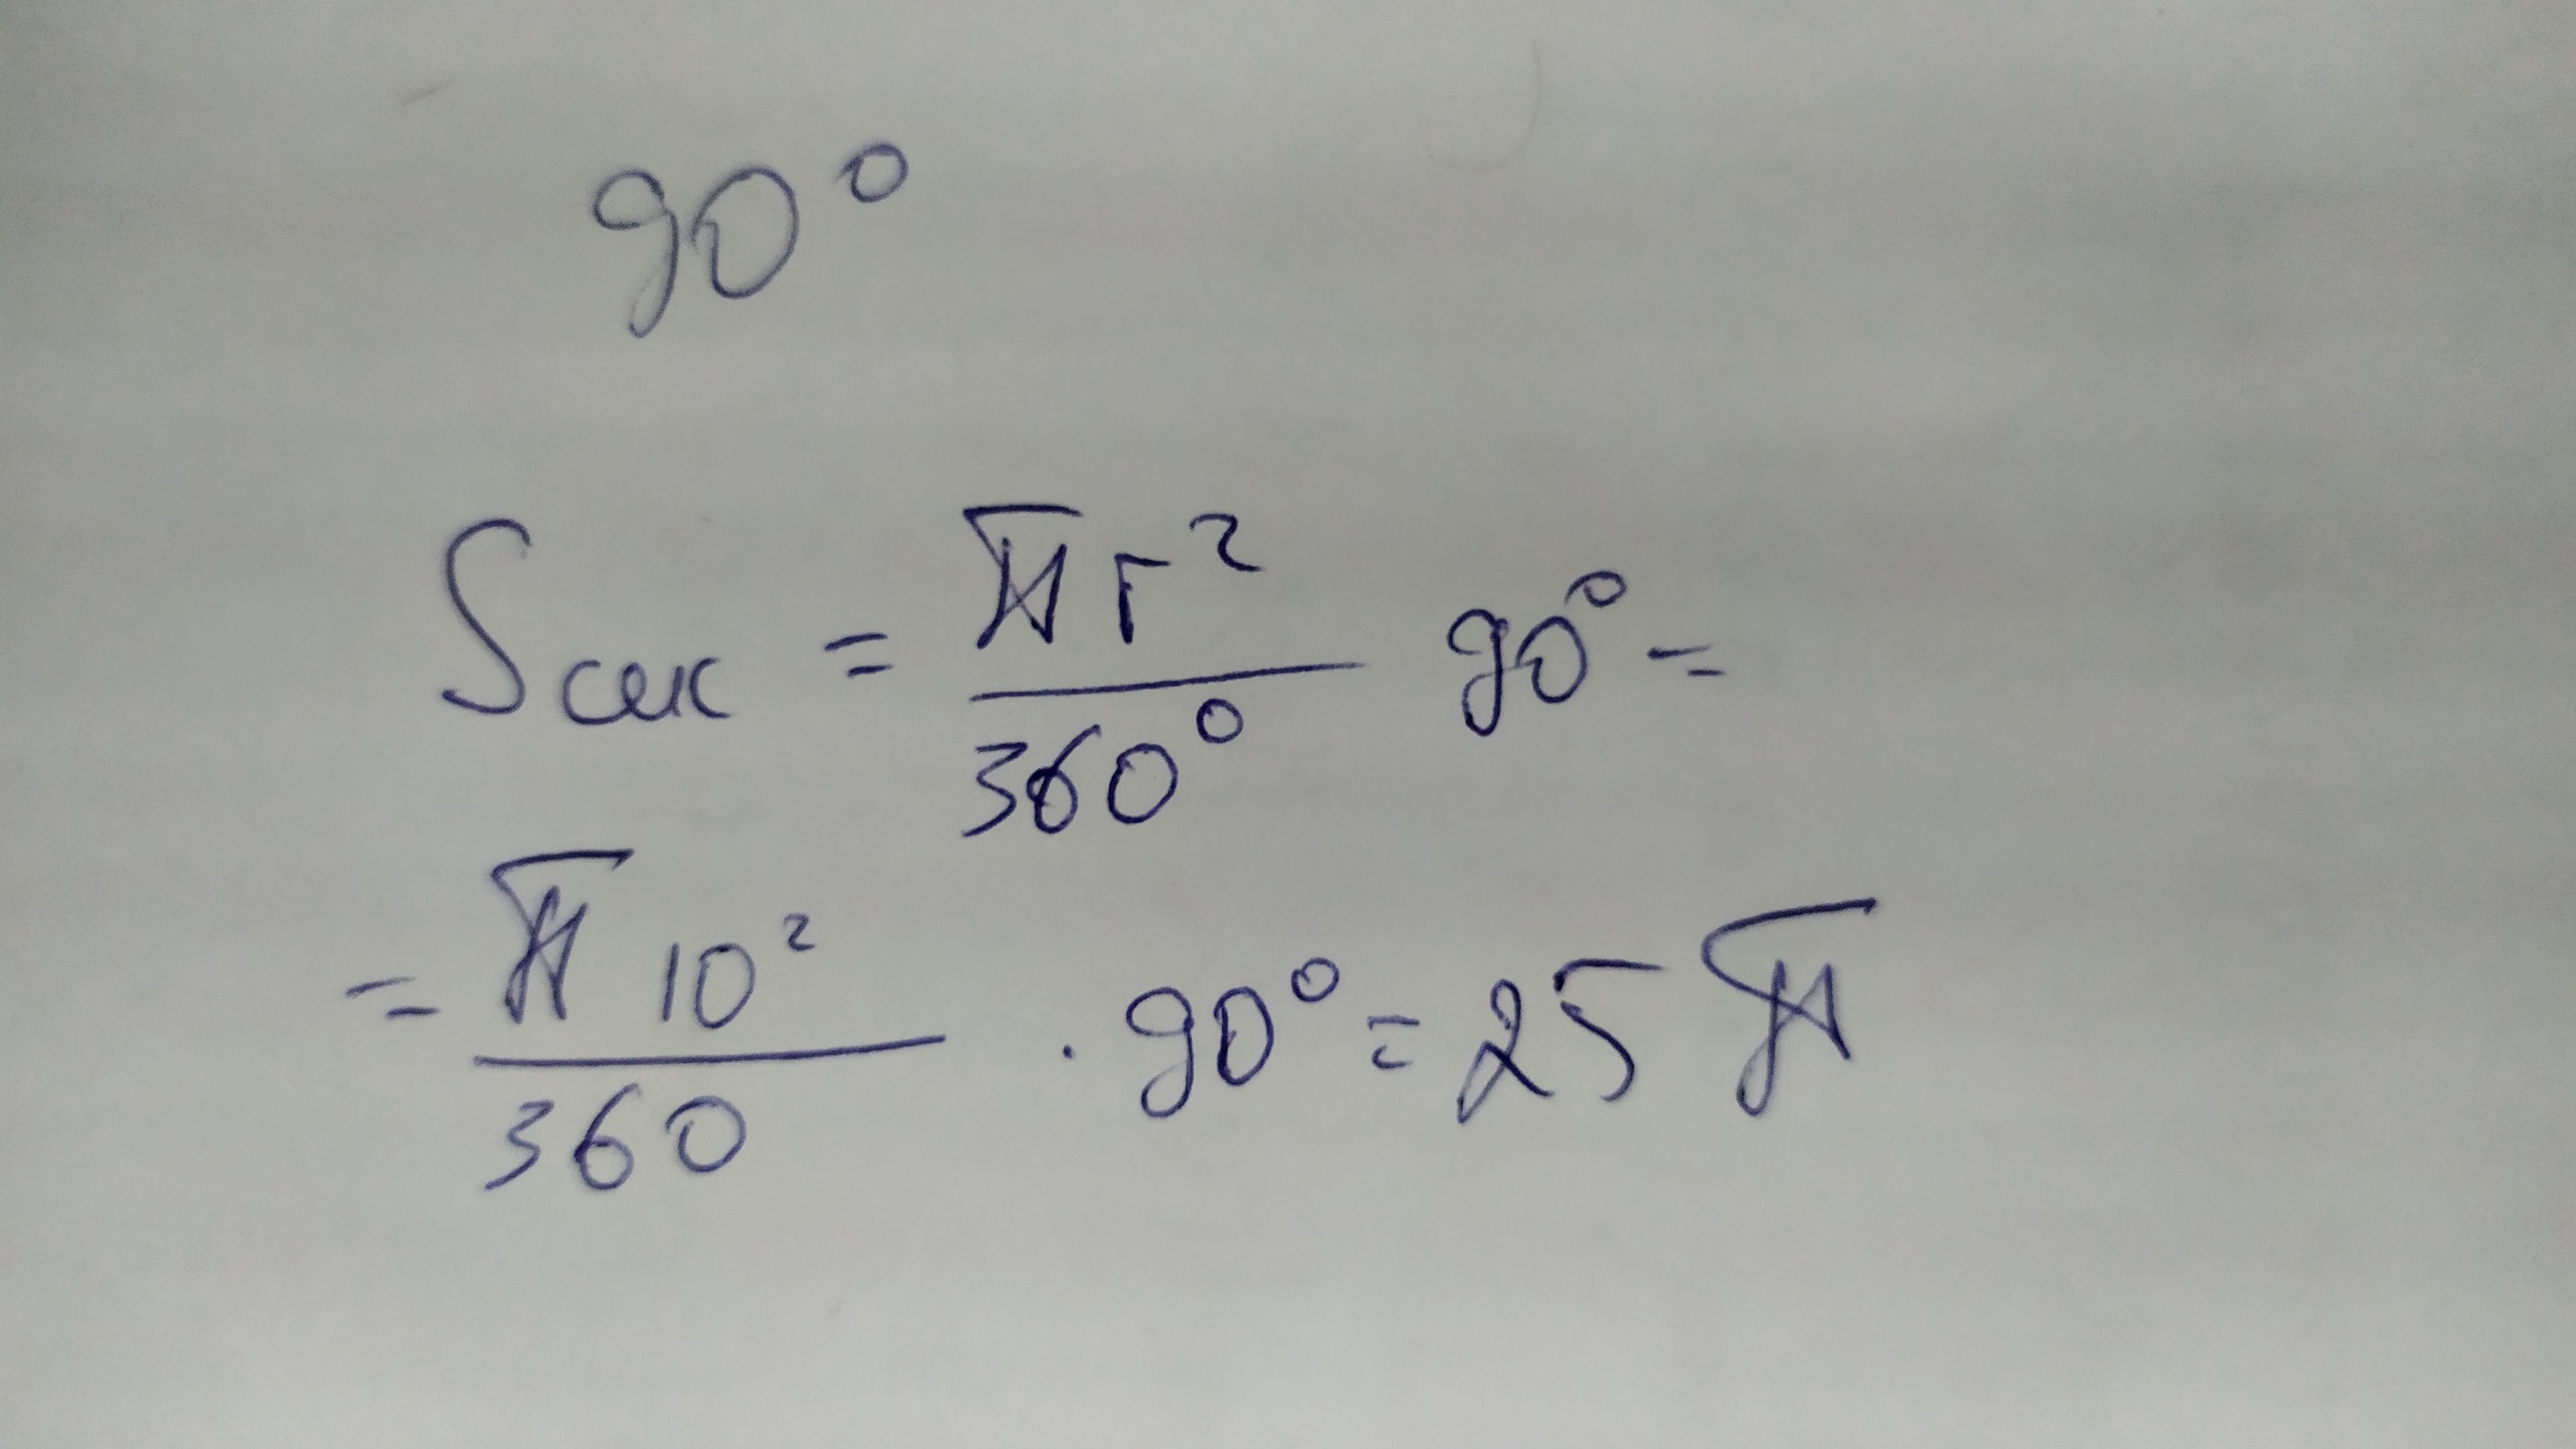 90°
Sсек = πr²/360° 90° =
= π 10²/360 · 90° = 25 π